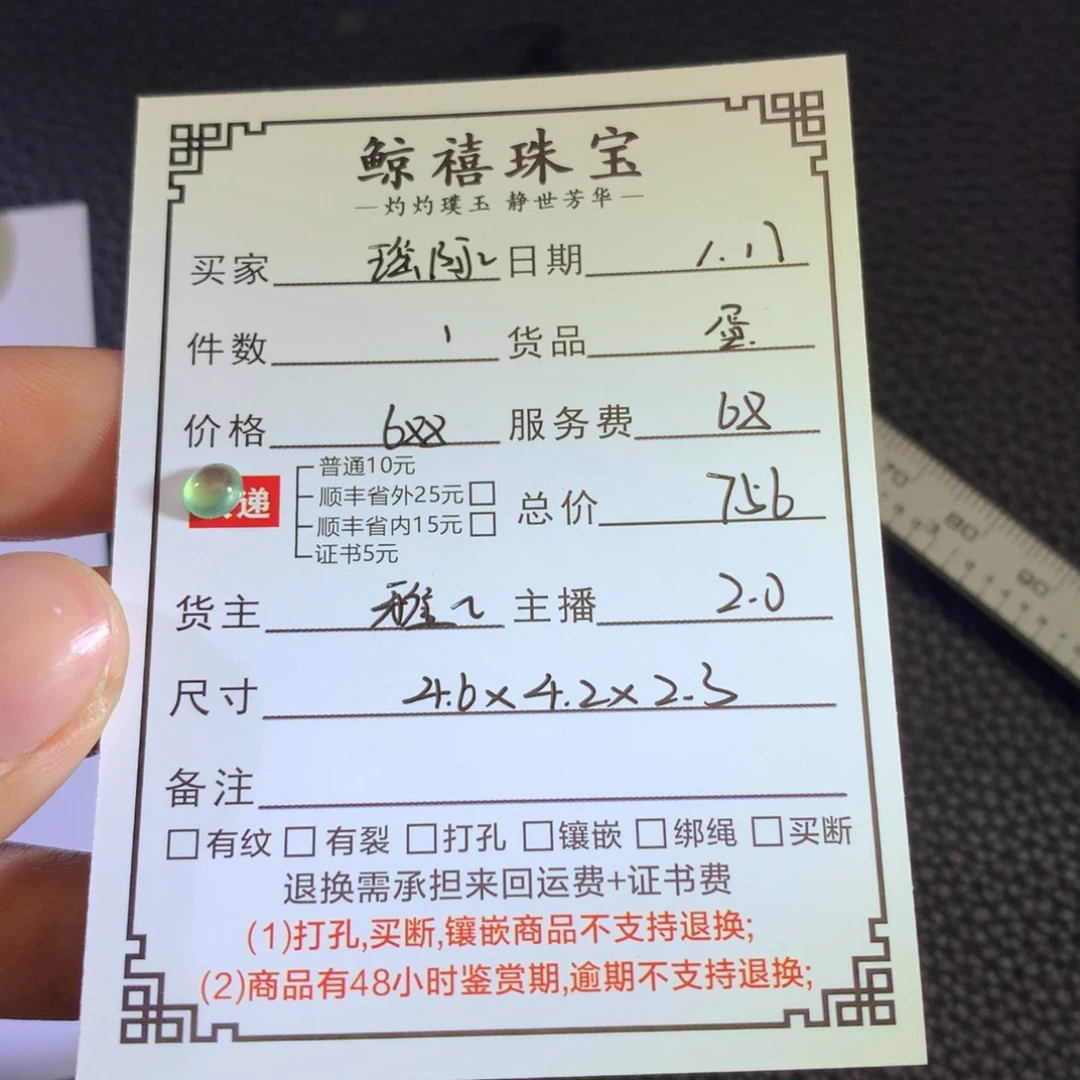 鲸禧珠宝
—灼灼璞玉 静世芳华—
买家 日期 1.17
件数 1 货品 蛋
价格 688 服务费 68
递 普通10元
顺丰省外25元
顺丰省内15元
证书5元
总价 756
货主 雅 主播 2.0
尺寸 4.6×4.2×2.3
备注
有纹 有裂 打孔 镶嵌 绑绳 买断
退换需承担来回运费+证书费
(1)打孔,买断,镶嵌商品不支持退换;
(2)商品有48小时鉴赏期,逾期不支持退换;
70 80 90